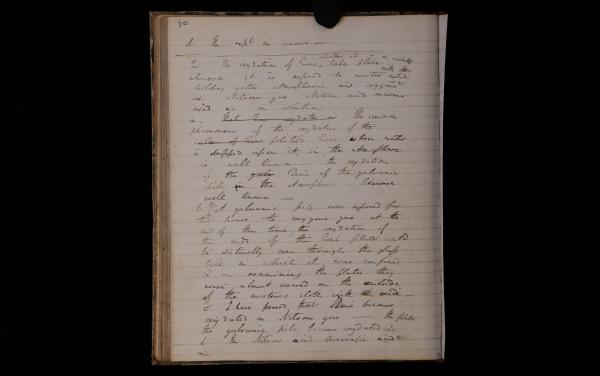 70
d the expt in vacuo —
The oxydation of Zinc, takes place
whenever it is exposed to water
holding either Atmospheric air oxygene
Nitrous gas Nitrous acid muriatic
acid &c in solution
a. That Zinc oxydates in The common
phenomena of the oxydation of the
of Zinc polished Zinc when water
is dropped upon it, in the atmosphere
is well known — the oxydation
of the Zinc of the galvanic
pile in the Atmosphere likewise
well known —
b. A galvanic pile was exposed for
hours to oxygene gas. at the
end of this time, the oxydation of
the ends of the Zinc plates could
be distinctly seen through the glass
in which it was confined
& on examining the plates they
were almost covered on the outside
of the moistened cloth with
c I have proved that Zinc becomes
oxydated in Nitrous gas — the plates
the galvanic pile became oxydated &c
d In Nitrous acid muriatic acid
&c